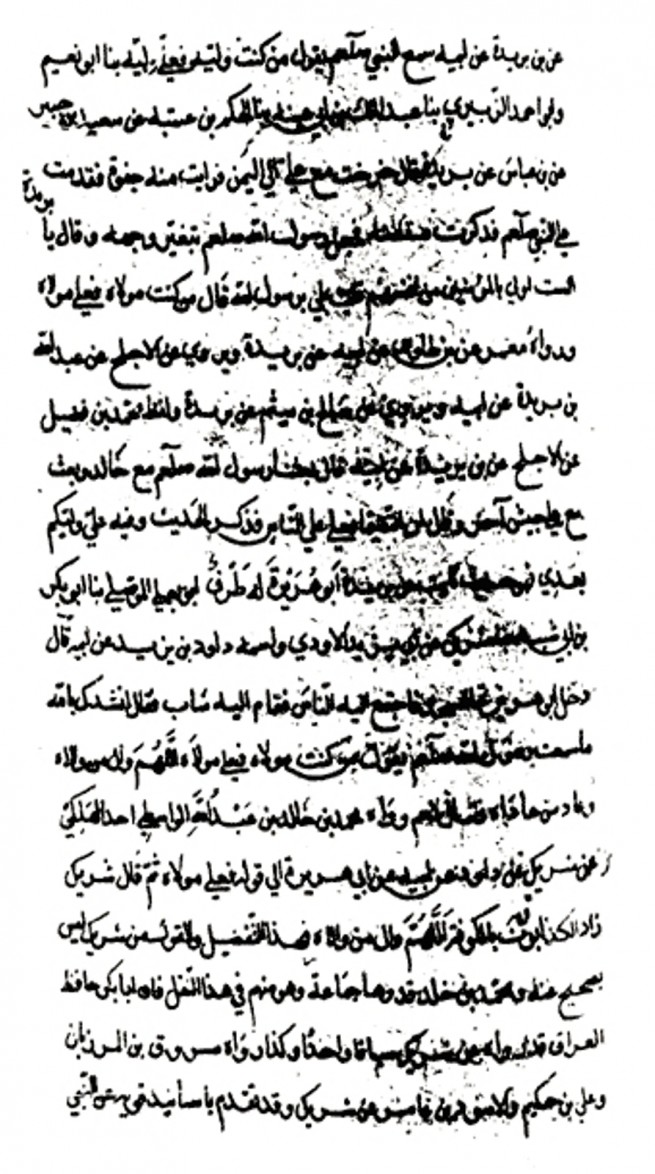 عن بن بريدة عن ابيه سمع النبي صلعم يقول من كنت وليه فعلي وليه نا ابو نعيم
وابو احمد الزبيري نا عبد الملك بن ابي غنية نا الحكم بن عتيبة عن سعيد بن جبير
عن بن عباس عن بريدة قال خرجت مع علي الي اليمن فرايت منه جفوة فقدمت
علي النبي صلعم فذكرت رسول الله صلعم يتغير وجهه وقال يا بريدة
الست اولي بالمؤمنين من انفسهم قلت بلي يرسول الله قال من كنت مولاه فعلي مولاه
ورواه معمر عن بن طاوس عن ابيه عن بريدة ويروي عن الاجلح عن عبد الله
بن بريدة عن ابيه ويروي عن صالح بن ميثم عن بريدة ولفظ محمد بن فضيل
عن الاجلح عن بن بريدة عن ابيه قال بعثنا رسول الله صلعم مع خالد وبعث
مع علي جيش آخر وقال ان التقيتما فعلي علي الناس فذكر الحديث وفيه علي وليكم
بعدي ابو هُرَيْرَة له طرق ابو يعلي الموصلي نا ابو بكر
بن ابي شيبة نا شريك عن ابي يزيد الاودي واسمه داود بن يزيد عن ابيه قال
دخل ابو هريرة المسجد فاجتمع اليه الناس فقام اليه شاب فقال انشدك بالله
ما سمعت رسول الله صلعم يقول من كنت مولاه فعلي مولاه اللهم وال من والاه
وعاد من عاداه فقال نعم ورواه محمد بن خالد بن عبد الله الواسطي احد الهلكي
عن شريك عن داود عن ابيه عن ابي هريرة الي قوله فعلي مولاه ثم قال شريك
زاد الكذابون بالكوفة اللهم وال من والاه فهذا التفصيل والقول عن شريك ليس
بصحيح عنه ومحمد بن خالد قد وهاه جماعة وهو متهم في هذا النقل فان ابا بكر حافظ
العراق قد رواه عن شريك سياقا واحدا وكذا رواه مسروق بن المرزبان
وعلي بن حكيم والاسود بن عامر عن شريك وقد تقدم باسانيد قوية عن النبي